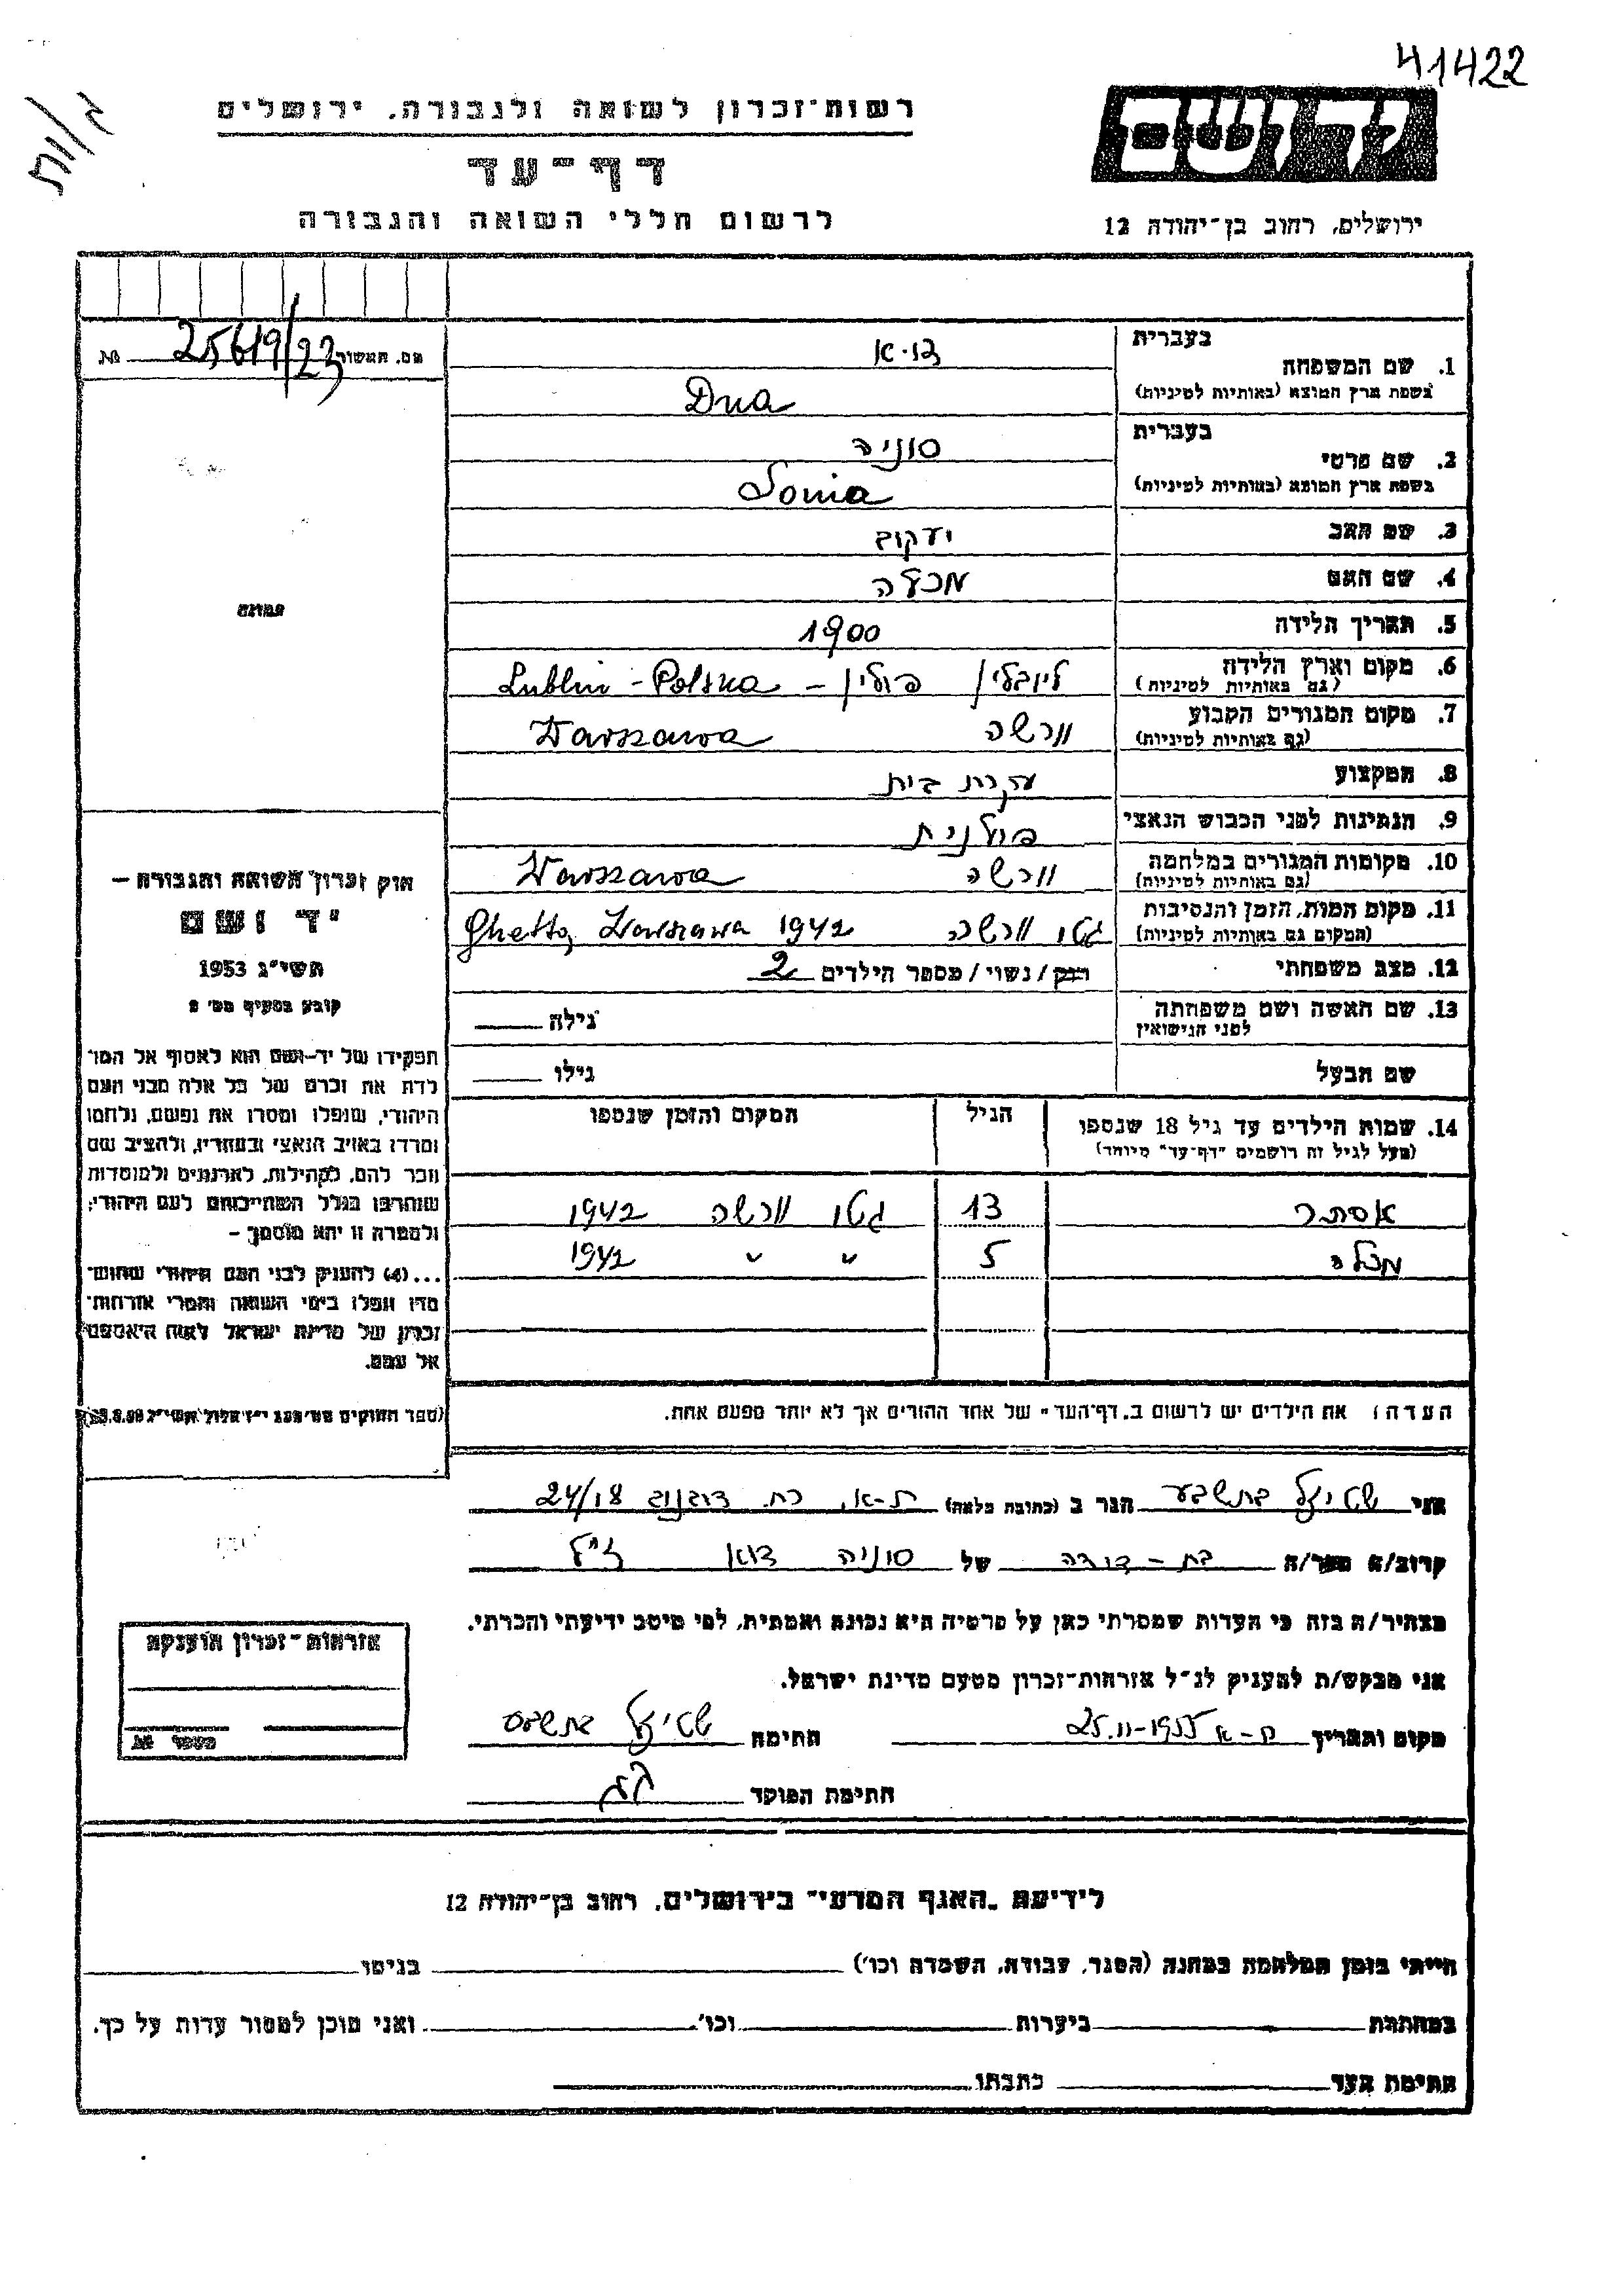 41422
יד ושם
ירושלים, רחוב בן־יהודה 12
רשות־זכרון לשואה ולגבורה, ירושלים
דף־עד
לרשום חללי השואה והגבורה
מס. האשור 25619/23 №
תמונה
חוק זכרון השואה והגבורה —
יד ושם
תשי״ג 1953
קובע בסעיף מס׳ 2
תפקידו של יד–ושם הוא לאסוף אל המו־
לדת את זכרם של כל אלה מבני העם
היהודי, שנפלו ומסרו את נפשם, נלחמו
ומרדו באויב הנאצי ובעוזריו, ולהציב שם
וזכר להם, לקהילות, לארגונים ולמוסדות
שנחרבו בגלל השתייכותם לעם היהודי;
ולמטרה זו יהא מוסמך –
...(4) להעניק לבני העם היהודי שהוש־
מדו ונפלו בימי השואה והמרי אזרחות־
זכרון של מדינת ישראל לאות היאספם
אל עמם.
בעברית
1. שם המשפחה
בשפת ארץ המוצא (באותיות לטיניות) Dua
בעברית סוניה
2. שם פרטי
בשפת ארץ המוצא (באותיות לטיניות) Sonia
3. שם האב יעקוב
4. שם האם מכלה
5. תאריך הלידה 1900
6. מקום וארץ הלידה ליובלין פולין – Lublin - Polska
(גם באותיות לטיניות)
7. מקום המגורים הקבוע וורשה Warszawa
(גם באותיות לטיניות)
8. המקצוע עקרת בית
9. הנתינות לפני הכבוש הנאצי פולנית
10. מקומות המגורים במלחמה וורשה Warszawa
(גם באותיות לטיניות)
11. מקום המות, הזמן והנסיבות גטו וורשה Ghetto Warszawa 1942
(המקום גם באותיות לטיניות)
12. מצב משפחתי רוק/נשוי/מספר הילדים 2
13. שם האשה ושם משפחתה גילה
לפני הנישואין
שם הבעל גילו
14. שמות הילדים עד גיל 18 שנספו הגיל המקום והזמן שנספו
(מעל לגיל זה רושמים "דף־עד" מיוחד)
אסתר 13 גטו וורשה 1942
מכלה 5 " " 1942
הערה: את הילדים יש לרשום ב„דף־העד" של אחד ההורים אך לא יותר מפעם אחת.
אני שטיגל בתשבע הגר ב (כתובת מלאה) ת-א, רח. 24/18
קרוב/ה מער/ה בת-דודה של סוניה דוא ז״ל
מצהיר/ה בזה כי העדות שמסרתי כאן על פרטיה היא נכונה ואמתית, לפי מיטב ידיעתי והכרתי.
אני מבקש/ת להעניק לנ״ל אזרחות־זכרון מטעם מדינת ישראל.
מקום ותאריך ת-א 25.11-1955 חתימה
חתימת הפוקד
אזרחות־זכרון הוענקה
מספר №
לידיעת „האגף המדעי" בירושלים, רחוב בן־יהודה 12
הייתי בזמן המלחמה במחנה (הסגר, עבודה, השמדה וכו׳) בגיטו
במחתרת ביערות וכו׳ ואני מוכן למסור עדות על כך.
חתימת העד כתבתו